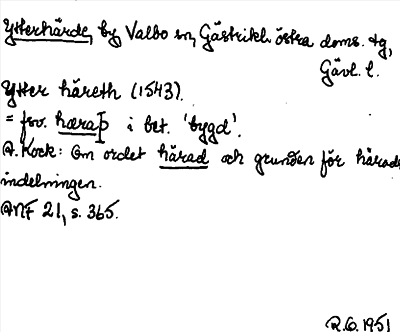 Ytterhärde, by Valbo sn, Gästrikl. östra doms. tg,
Gävl. l.
Ytter häreth (1543).
= fsv. hæraþ i bet. 'bygd'.
A. Kock: Om ordet härad och grunden för härads-
indelningen.
ANF 21, s. 365.
R.G. 1951